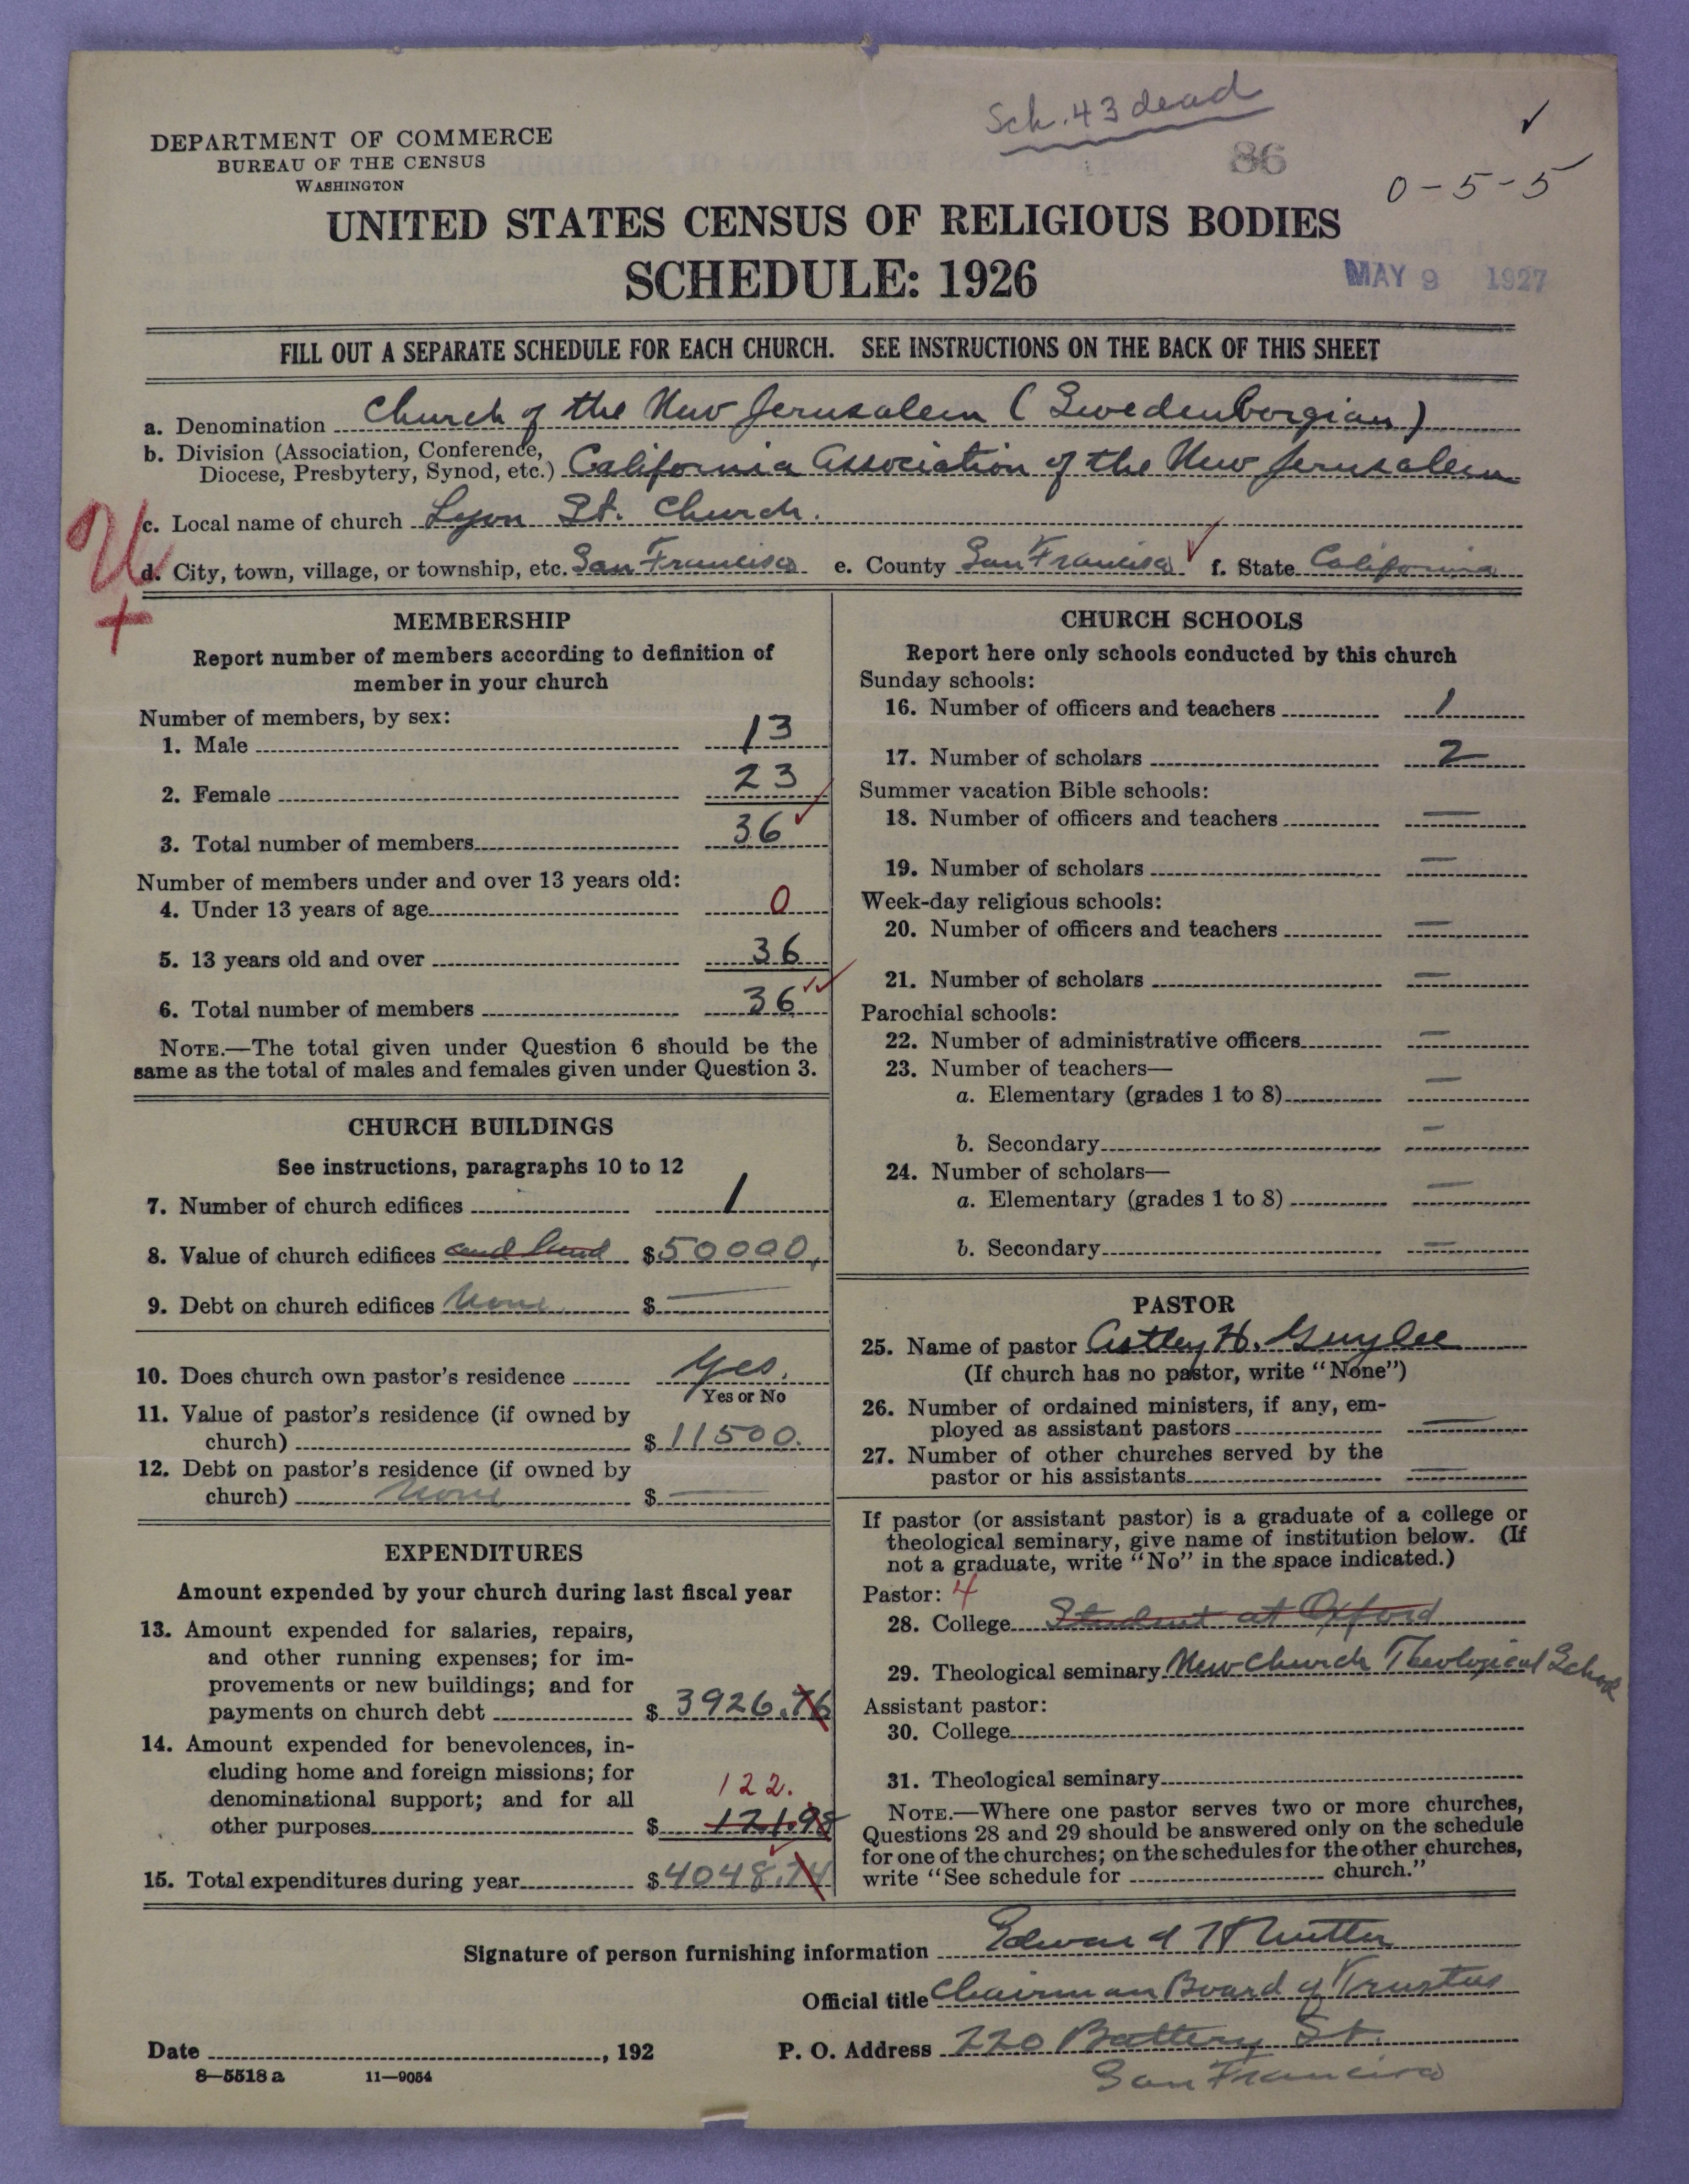 Sch. 43 dead
86
✓
0-5-5
DEPARTMENT OF COMMERCE
BUREAU OF THE CENSUS
WASHINGTON
UNITED STATES CENSUS OF RELIGIOUS BODIES
SCHEDULE: 1926
MAY 9 1927
FILL OUT A SEPARATE SCHEDULE FOR EACH CHURCH. SEE INSTRUCTIONS ON THE BACK OF THIS SHEET
a. Denomination Church of the New Jerusalem (Swedenborgian)
b. Division (Association, Conference,
Diocese, Presbytery, Synod, etc.) California Association of the New Jerusalem
c. Local name of church Lyon St. Church.
d. City, town, village, or township, etc. San Francisco e. County San Francisco ✓ f. State California
MEMBERSHIP
Report number of members according to definition of
member in your church
Number of members, by sex:
1. Male 13
2. Female 23
3. Total number of members 36 ✓
Number of members under and over 13 years old:
4. Under 13 years of age 0
5. 13 years old and over 36
6. Total number of members 36 ✓✓
NOTE.—The total given under Question 6 should be the
same as the total of males and females given under Question 3.
CHURCH BUILDINGS
See instructions, paragraphs 10 to 12
7. Number of church edifices 1
8. Value of church edifices and land $50000.
9. Debt on church edifices None $ —
10. Does church own pastor's residence Yes.
Yes or No
11. Value of pastor's residence (if owned by
church) $11500.
12. Debt on pastor's residence (if owned by
church) None $ —
EXPENDITURES
Amount expended by your church during last fiscal year
13. Amount expended for salaries, repairs,
and other running expenses; for im-
provements or new buildings; and for
payments on church debt $3926.76
14. Amount expended for benevolences, in-
cluding home and foreign missions; for
denominational support; and for all
122.
other purposes $ 121.98
15. Total expenditures during year $4048.74
CHURCH SCHOOLS
Report here only schools conducted by this church
Sunday schools:
16. Number of officers and teachers 1
17. Number of scholars 2
Summer vacation Bible schools:
18. Number of officers and teachers —
19. Number of scholars —
Week-day religious schools:
20. Number of officers and teachers —
21. Number of scholars —
Parochial schools:
22. Number of administrative officers —
23. Number of teachers—
a. Elementary (grades 1 to 8) —
b. Secondary —
24. Number of scholars—
a. Elementary (grades 1 to 8) —
b. Secondary —
PASTOR
25. Name of pastor Astley H.
(If church has no pastor, write "None")
26. Number of ordained ministers, if any, em-
ployed as assistant pastors —
27. Number of other churches served by the
pastor or his assistants —
If pastor (or assistant pastor) is a graduate of a college or
theological seminary, give name of institution below. (If
not a graduate, write "No" in the space indicated.)
Pastor: 4
28. College Student at Oxford
29. Theological seminary New Church Theological School
Assistant pastor:
30. College
31. Theological seminary
NOTE.—Where one pastor serves two or more churches,
Questions 28 and 29 should be answered only on the schedule
for one of the churches; on the schedules for the other churches,
write "See schedule for church."
Signature of person furnishing information Edward
Official title Chairman Board of Trustees
Date , 192 P. O. Address 220 Battery St.
San Francisco
8—5518 a 11—9054